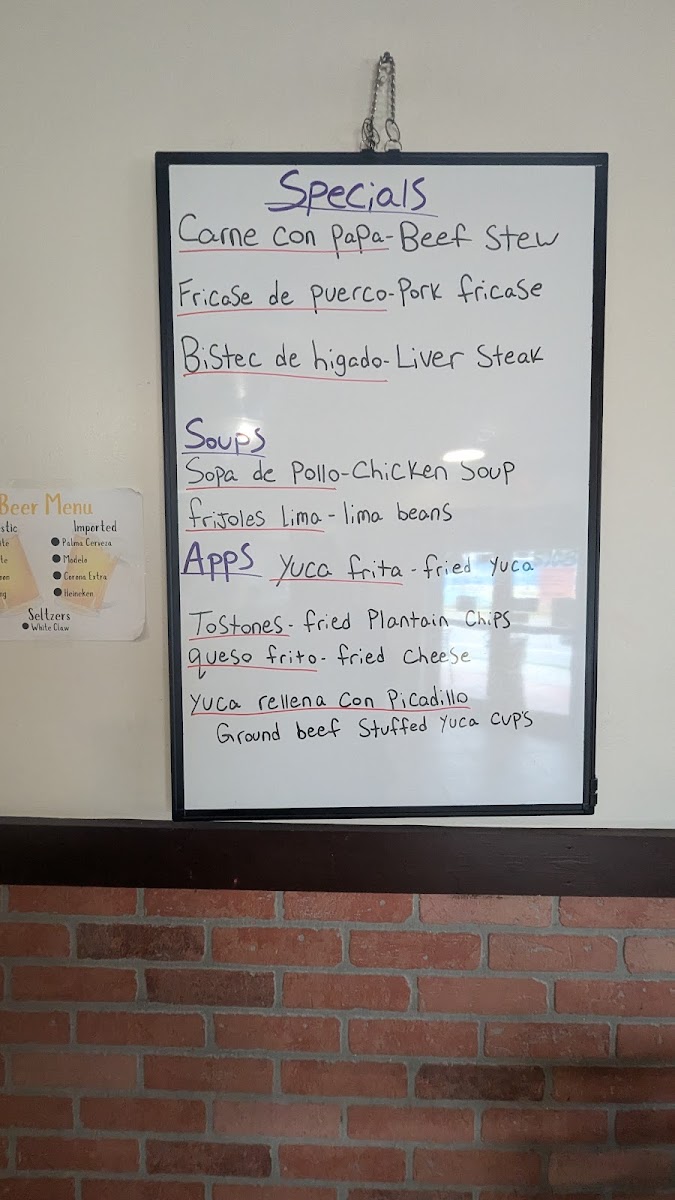 Specials
Carne con papa-Beef Stew
Fricase de puerco-Pork fricase
Bistec de higado-Liver Steak
Soups
Sopa de Pollo-Chicken Soup
frijoles lima-lima beans
Apps Yuca frita-fried Yuca
Tostones-fried Plantain Chips
queso frito-fried cheese
Yuca rellena con Picadillo
Ground beef Stuffed Yuca cup's
Beer Menu
Imported
Palma Cerveza
Modelo
Corona Extra
Heineken
Seltzers
White Claw